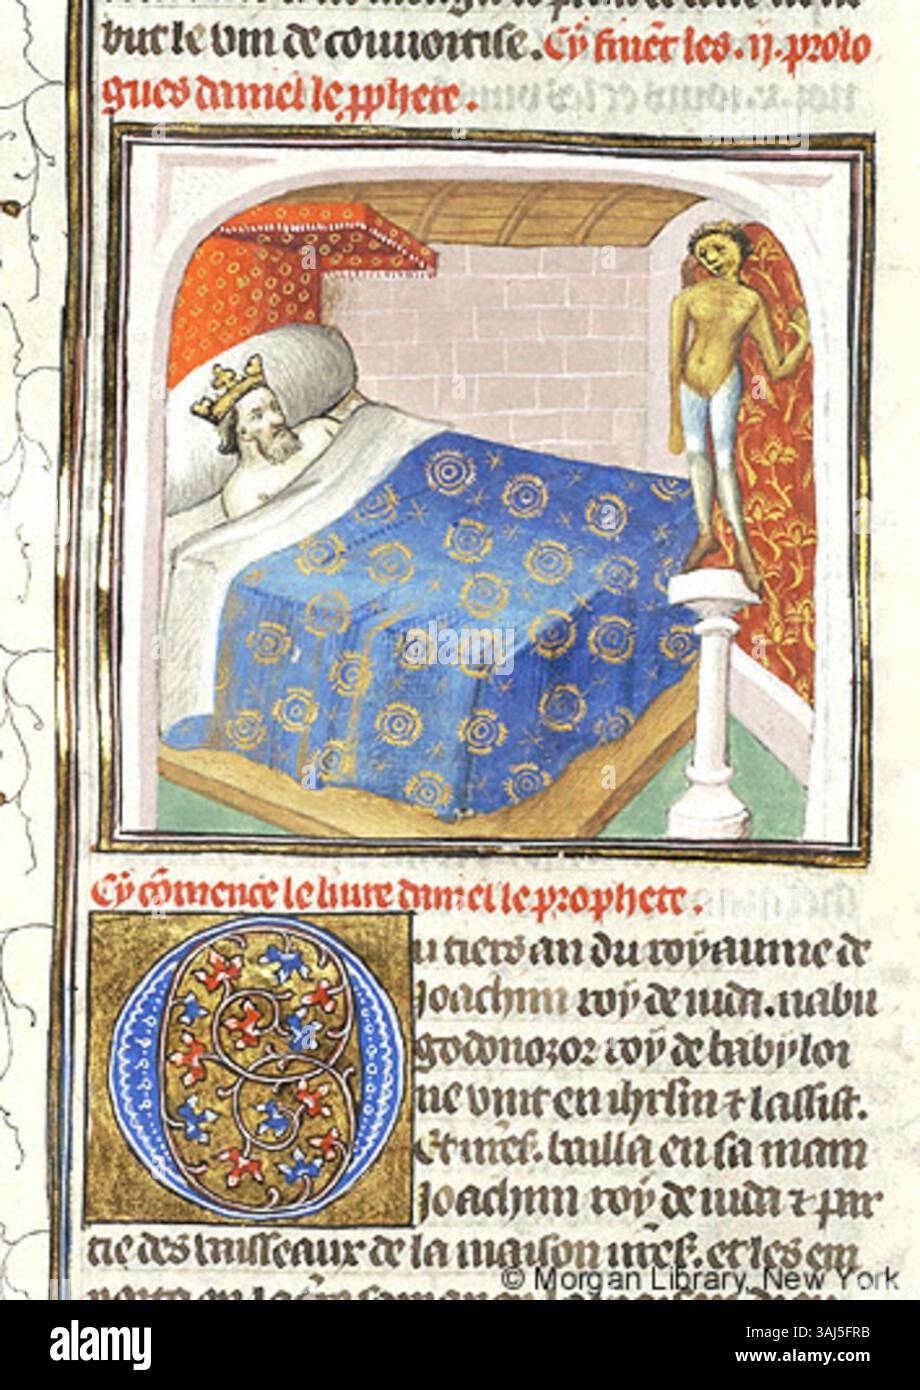 but le vin de couuoitise. Cy finēt les .ij. prolo
gues daniel le pphete.
Cy cōmence le liure daniel le prophete.
Ou tiers an du royaume de
Joachim roy de iuda. nabu
godonozor roy de babyloi
ne vint en ihrlm ⁊ lassist.
Et nr̄es. bailla en sa main
Joachim roy de iuda ⁊ par
tie des vaisseaux de la maison nr̄es. et les em
© Morgan Library, New York
alamy
Image ID: 2AJ5FRB
www.alamy.com